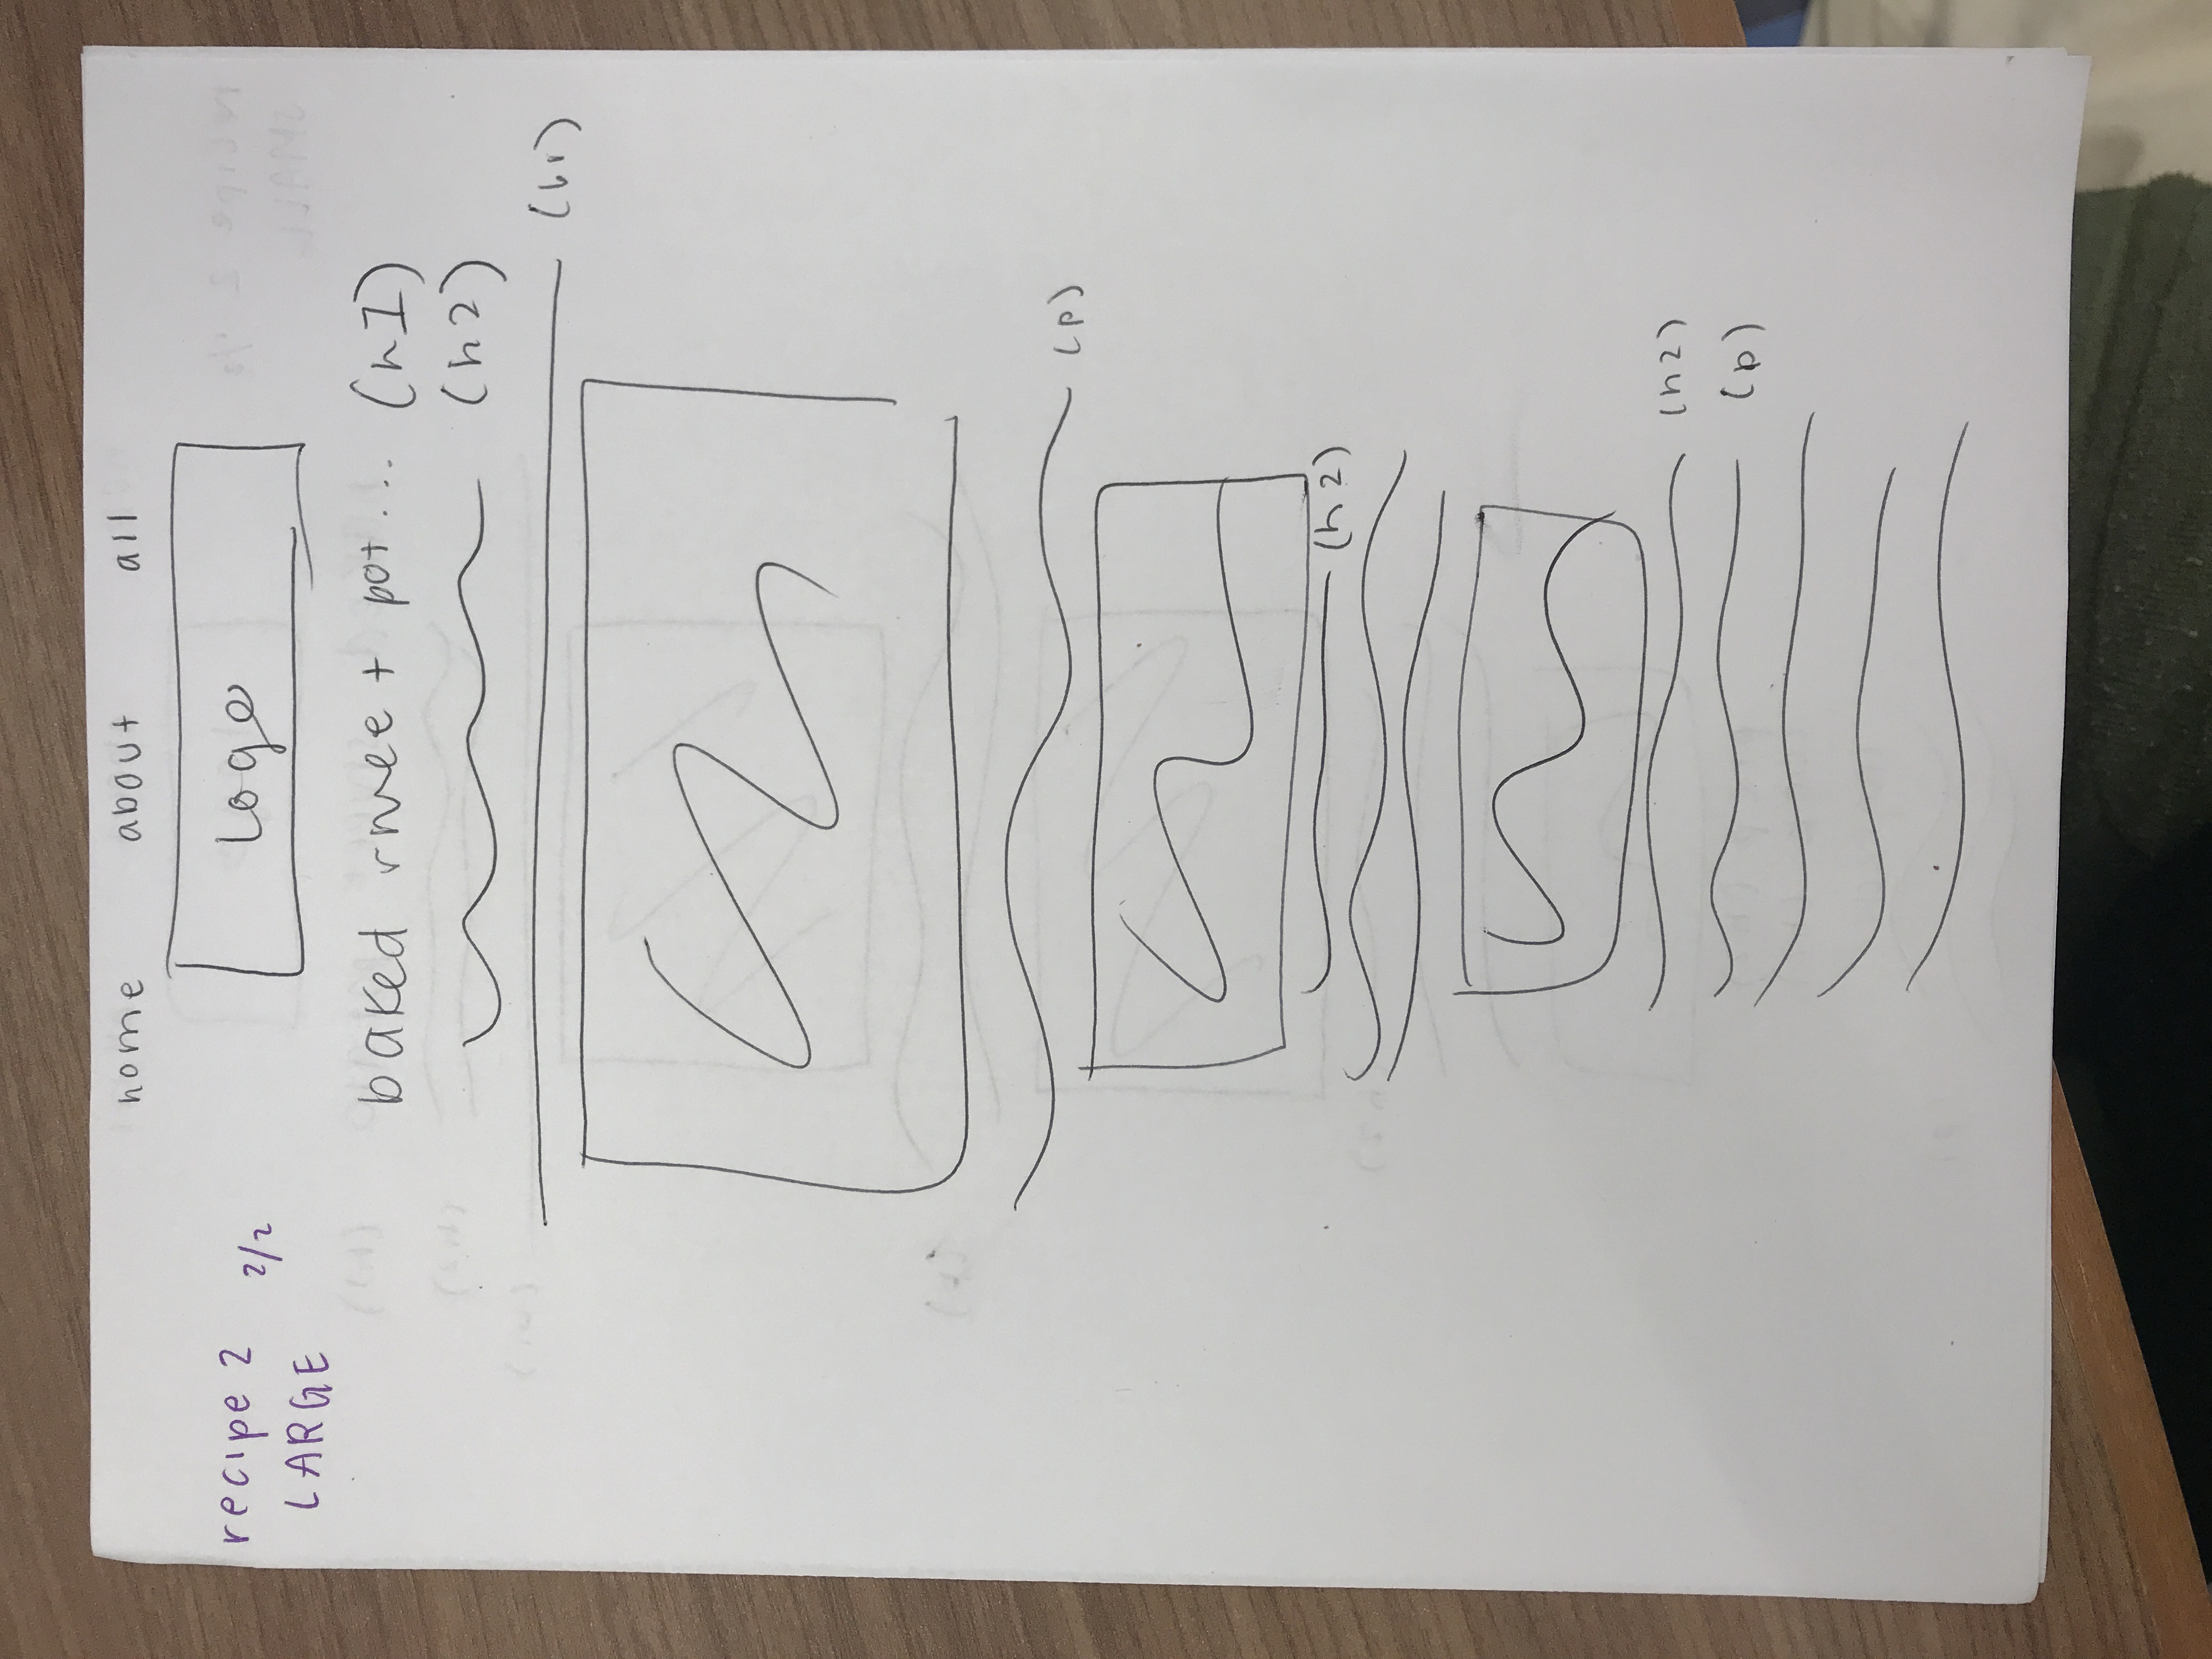 home about all
recipe 2 2/2
LARGE
Logo
baked + pot... (h1)
(h2)
(br)
(p)
(h2)
(h2)
(p)